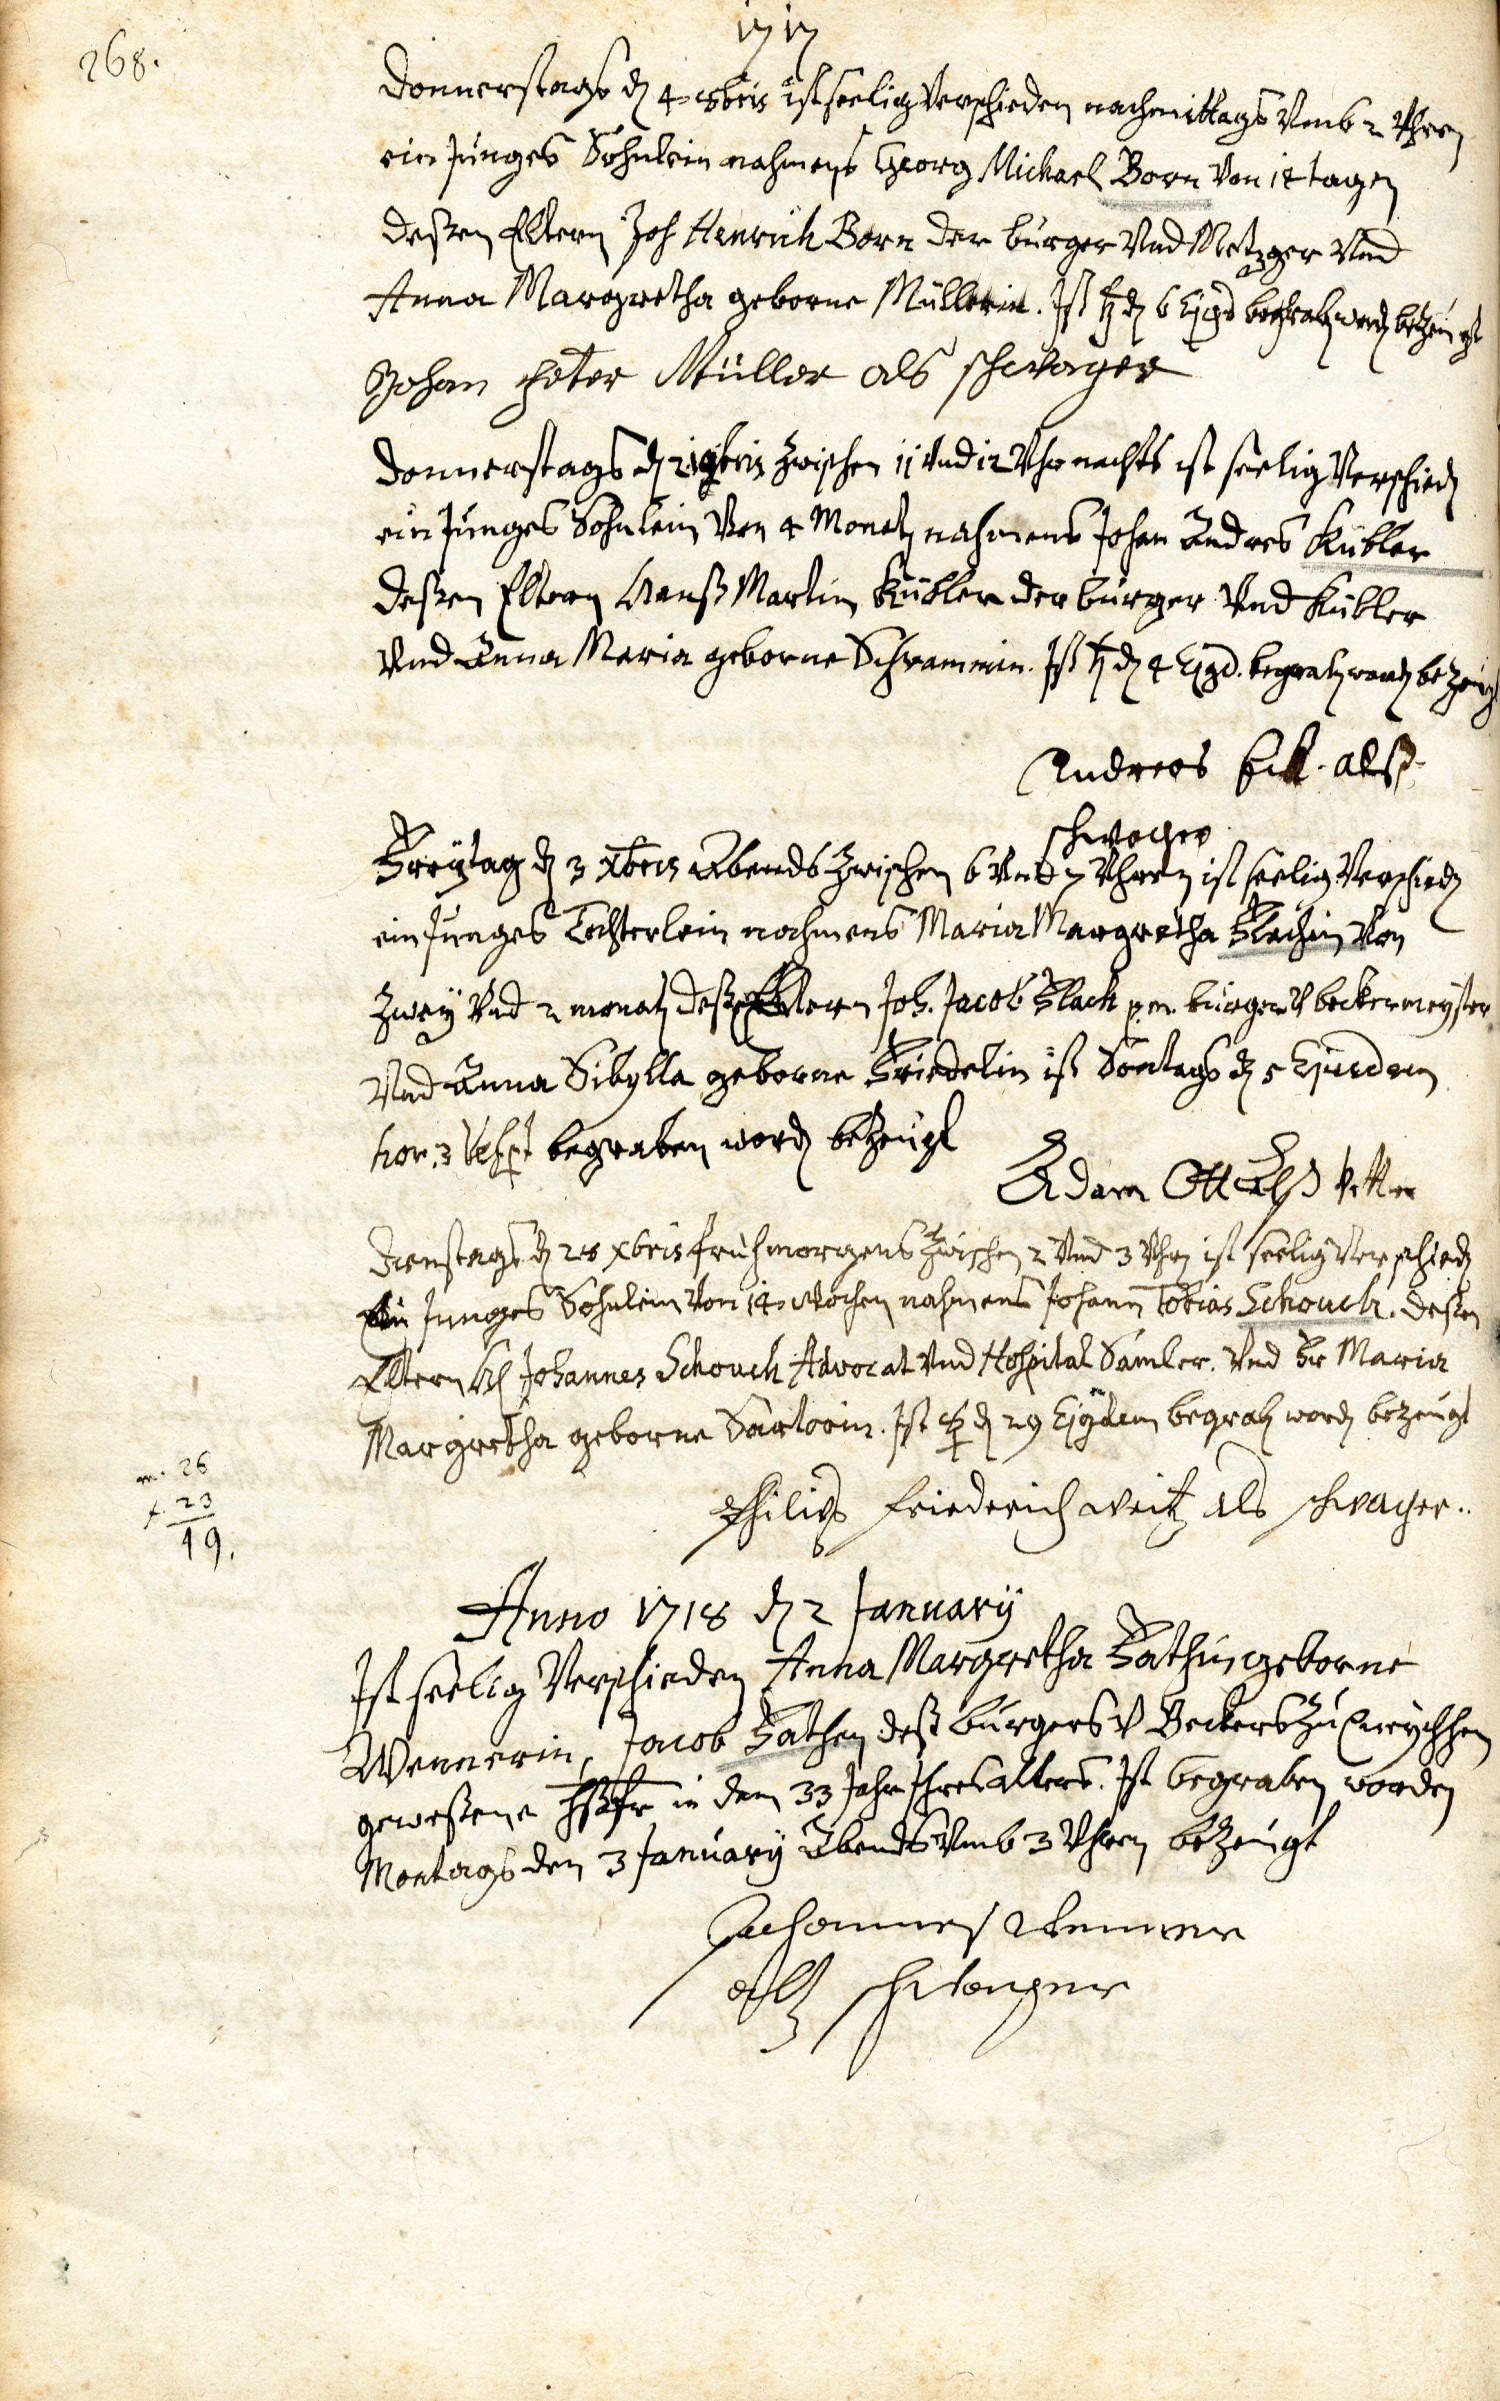 268.
1717
Donnerstags d 4 9bris ist seelig Verschieden nachmittags Vmb 2 Vhren
ein Junges Söhnlein nahmens Georg Michael Born Von 12 tagen
deßen Eltern Joh Henrich Born der burger Vnd Metzger Vnd
Anna Margretha geborne Müllerin. Ist d 6 Ejgd begrab word bezeugt
Johan Peter Müller als schwager
Donnerstags d 2 Xbris zwischen 11 Vnd 12 Vhr nachts ist seelig Verschied
ein Junges Söhnlein Von 4 Monat nahmens Johan Andres Kübler
deßen Eltern Hanß Martin Kübler der burger Vnd Kübler
Vnd Anna Maria geborne Schrammin. Ist d 4 Ejgd. begrab word bezeugt
Andreas alß
schwager
Freytag d 3 Xbris Abends zwischen 6 Vnd 7 Vhren ist seelig Verschied
ein Junges Töchterlein nahmens Maria Margretha Flachin Von
zwey Vnd 2 monat deßen Eltern Joh. Jacob Flach burger V beckermeyster
Vnd Anna Sibylla geborne Friedelin ist Sontags d 5 Ejusdem
hor. 3 Vesp begraben word bezeugt
Adam Ott Alß Vetter
Dienstags d 28 Xbris früh morgens zwischen 2 Vnd 3 Vhr ist seelig Verschied
ein Junges Söhnlein Von 14 Wochen nahmens Johann Tobias Schouch. deßen
Eltern H Johannes Schouch Advocat Vnd Hospital Samler. Vnd Fr Maria
Margretha geborne Sartorin. Ist d 29 Ejgdem begrab word bezeugt
Philips Friederich Weitz als schwager..
m. 26
f. 23
49.
Anno 1718 d 2 January
Ist seelig Verschieden Anna Margretha Fathin geborne
Wennerin, Jacob Fathen deß burgers V Beckers zu Zweybrken
geweßene Hßfr in dem 33 Jahr Ihres alters. Ist begraben worden
Montags den 3 January Abends Vmb 3 Vhren bezeugt
Johannes Wenner
alß schwager